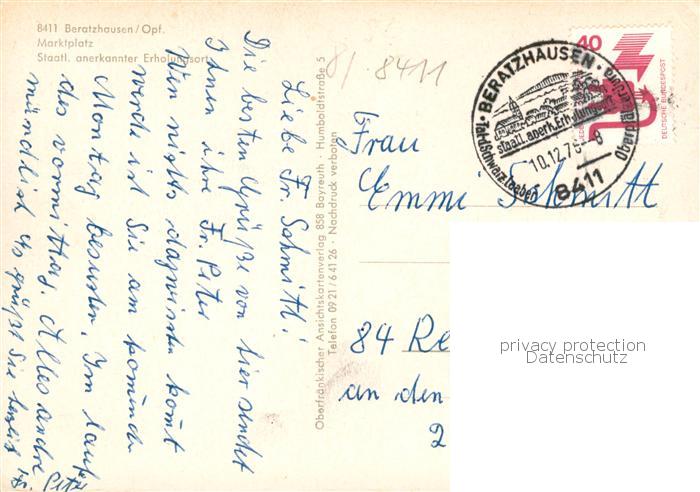 8411 Beratzhausen/Opf.
Marktplatz
Staatl. anerkannter Erholungsort
Liebe Fr. Schmitt!
Die besten Grüße von hier sendet
Ihnen ihre Fr. Peter
Wen nichts dazwischen komt
werde ich Sie am kommenden
Montag besuchen. Im laufe
des vormittag. Alles andre
mündlich es grüßt Sie herzlich Fr.
Peter
Oberfränkischer Ansichtskartenverlag 858 Bayreuth · Humboldtstraße 5
Telefon 09 21 / 6 41 26 · Nachdruck verboten
8/ 8411
BERATZHAUSEN
staatl. anerk. Erholungsort
10.12.76
8411
40
DEUTSCHE BUNDESPOST
Frau
Emmi Schmitt
84 Re
an den
2
privacy protection
Datenschutz